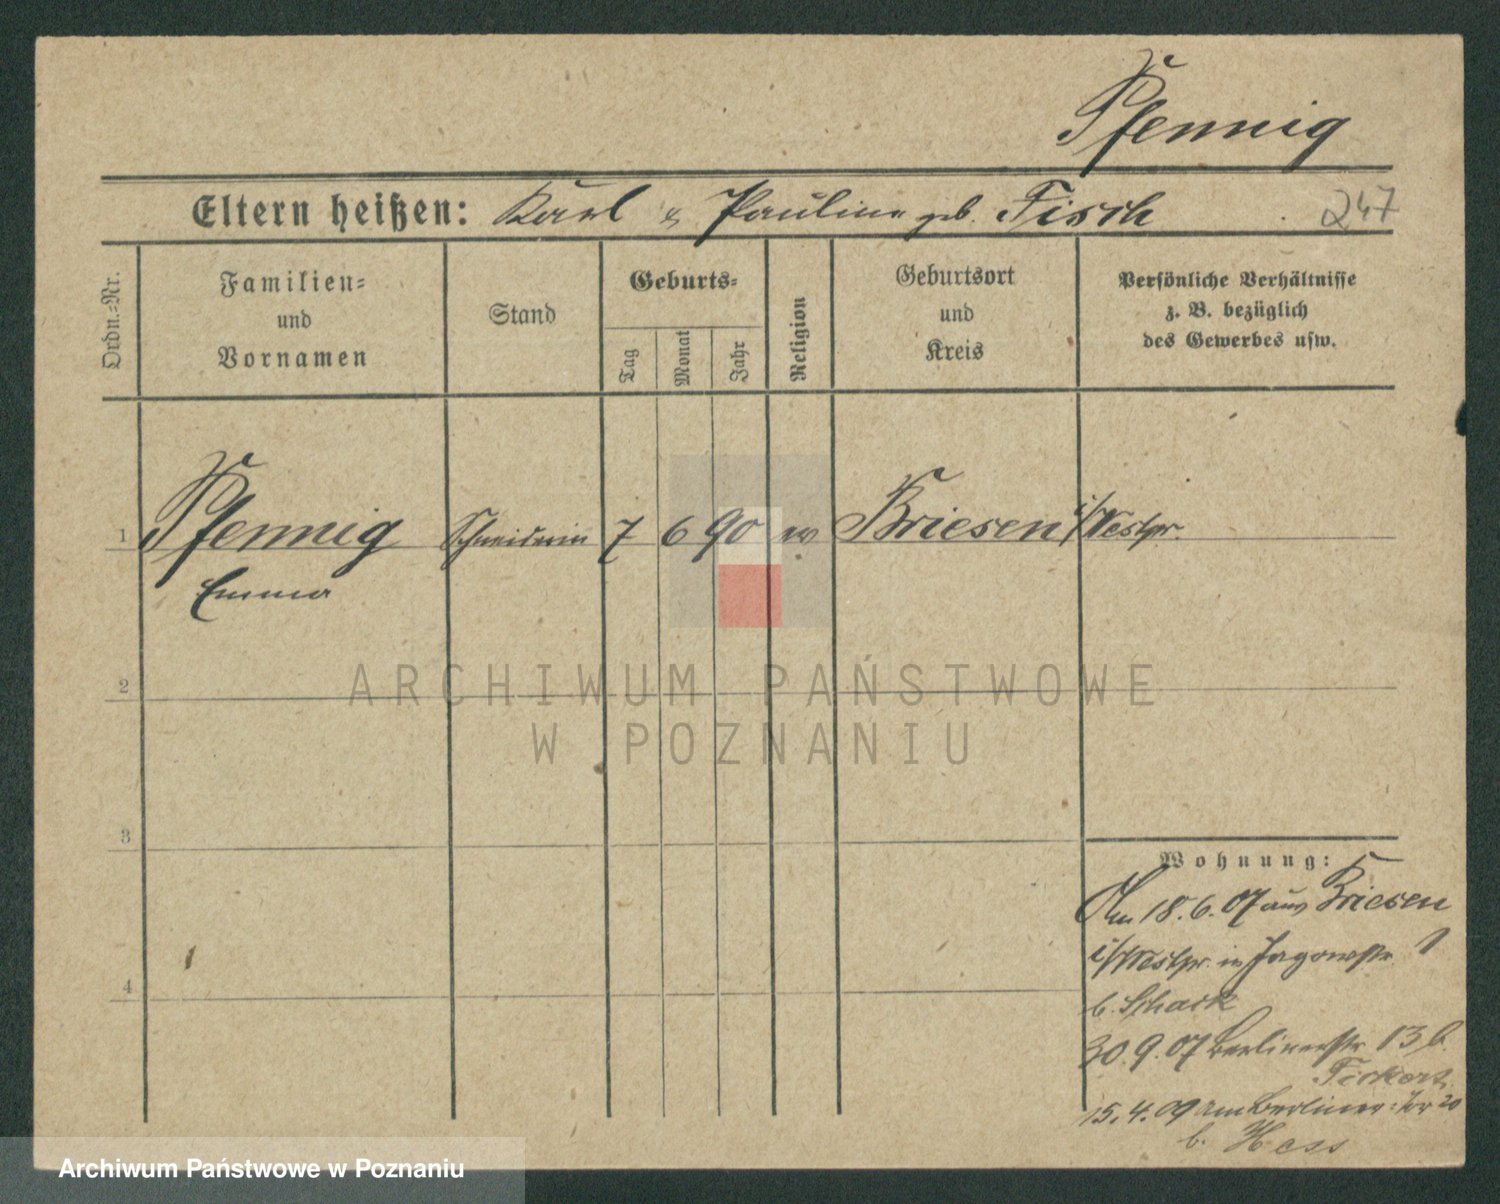 Pfennig
Eltern heißen: Karl & Pauline geb. Fisch
247
Ordn.-Nr.
Familien-
und
Vornamen
Stand
Geburts-
Tag
Monat
Jahr
Religion
Geburtsort
und
Kreis
Persönliche Verhältnisse
z. B. bezüglich
des Gewerbes usw.
1
Pfennig Schneiderin 7 6 90 ev Briesen i/Westpr.
Emma
2
ARCHIWUM PAŃSTWOWE
W POZNANIU
3
Wohnung:
18.6.07 aus Briesen
i/Westpr. in Jagowstr. 1
b. Schack
4
30.9.07 Berlinerstr. 13 b.
15.4.09 am Berliner Tor 20
b. Hess
Archiwum Państwowe w Poznaniu